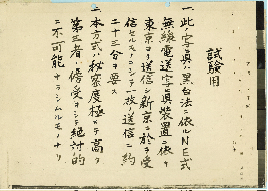 試験用
一、此ノ寫眞ハ黑白法ニ依ルNE式
無線電送寫眞裝置ニ依ッテ
東京ヨリ送信シ新京ニ於テ受
信セルモノニシテ一枚ノ送信ニ約
二十三分ヲ要ス
二、本方式ハ秘密度極メテ高ク
第三者ノ傍受ハ絕對的
ニ不可能ナラシムルモノナリ